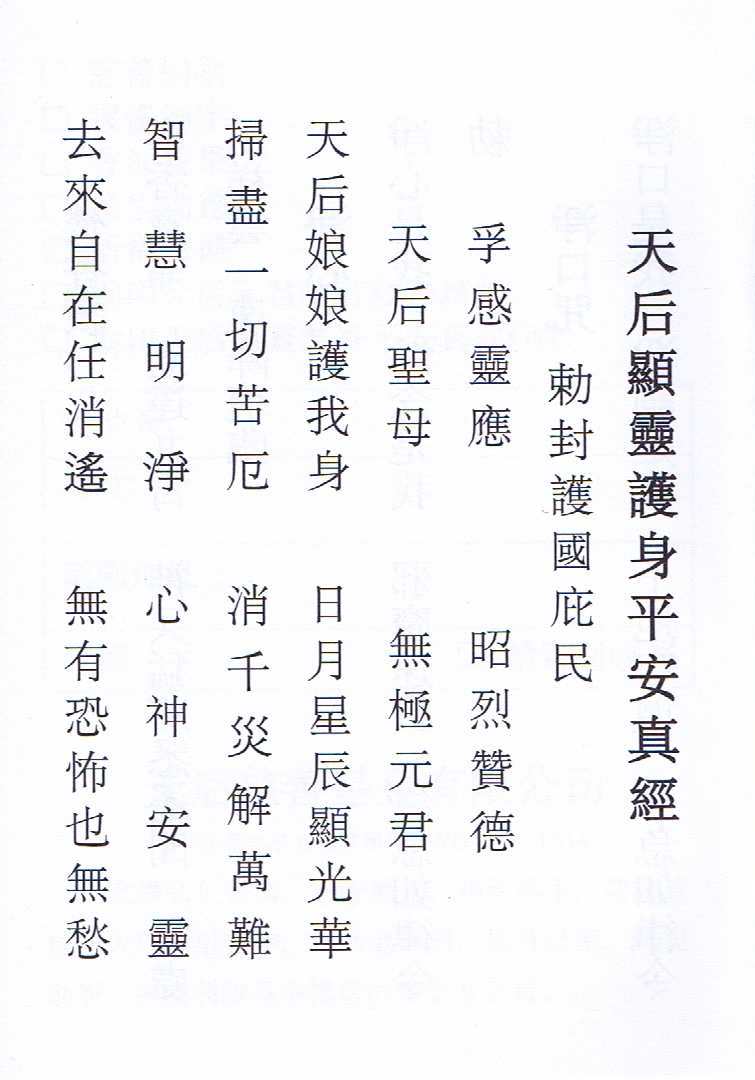 天后顯靈護身平安真經
勅封護國庇民
孚感靈應　昭烈贊德
天后聖母　無極元君
天后娘娘護我身　日月星辰顯光華
掃盡一切苦厄　消千災解萬難
智慧明淨　心神安靈
去來自在任消遙　無有恐怖也無愁